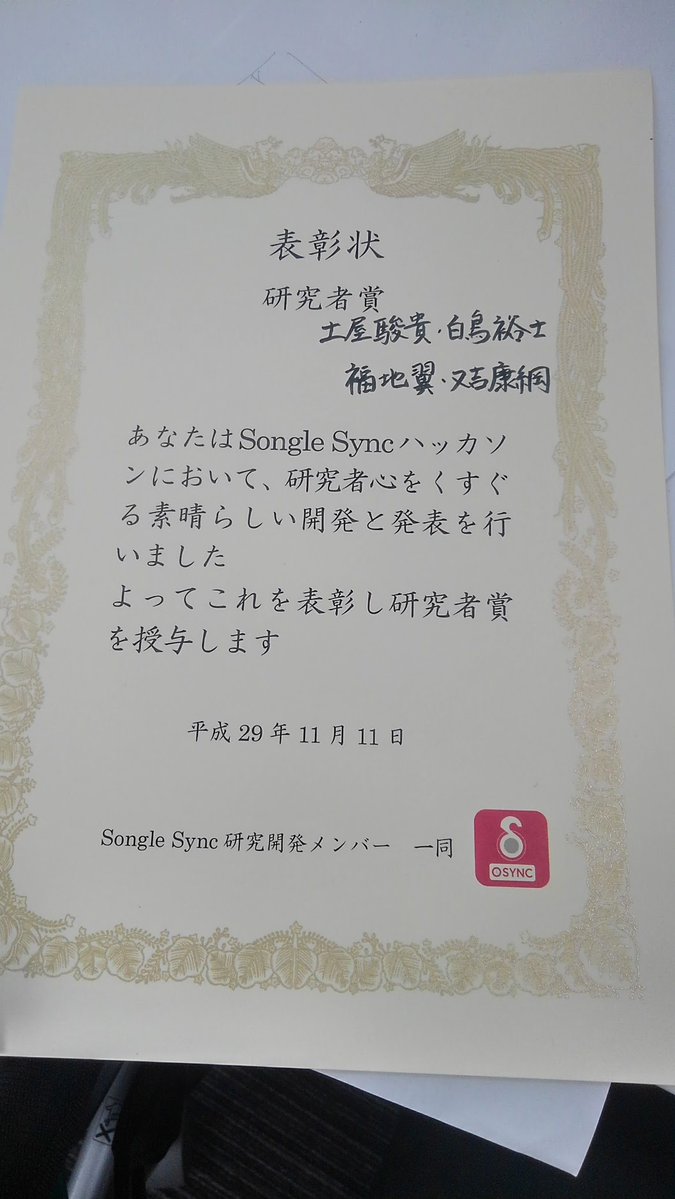 表彰状
研究者賞
土屋駿貴・白鳥裕士
福地翼・又吉康綱
あなたはSongle Syncハッカソ
ンにおいて、研究者心をくすぐ
る素晴らしい開発と発表を行
いました
よってこれを表彰し研究者賞
を授与します
平成 29 年 11 月 11 日
Songle Sync 研究開発メンバー 一同
OSYNC